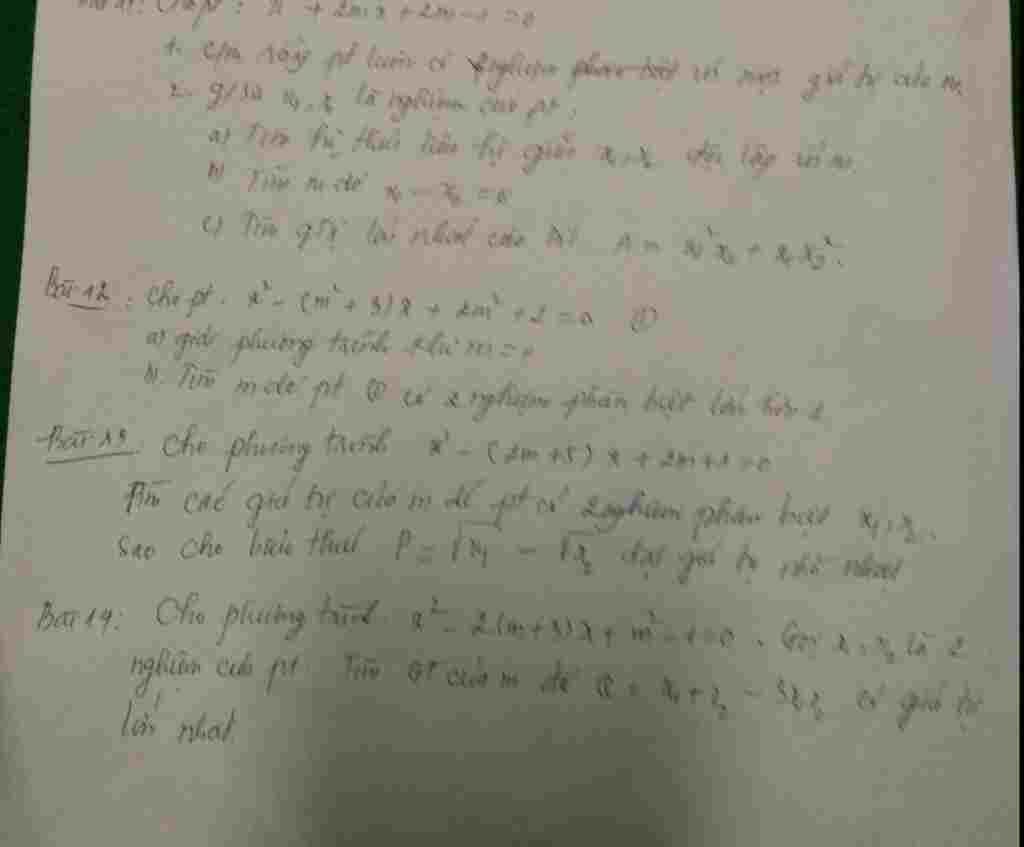 Cho pt: x² + 2mx + 2m - 1 = 0
1. C/m rằng pt luôn có 2 nghiệm phân biệt với mọi giá trị của m
2. g/sử x₁, x₂ là nghiệm của pt.
a) Tìm hệ thức liên hệ giữa x₁, x₂ độc lập với m
b) Tìm m để x₁ - x₂ = 6
c) Tìm gtrị lớn nhất của bt A = x₁²x₂ + x₁x₂².
Bài 12: Cho pt. x² - (m² + 3)x + 2m² + 2 = 0 ①
a) giải phương trình khi m = 0
b. Tìm m để pt ① có 2 nghiệm phân biệt lớn hơn 2
Bài 13. Cho phương trình x² - (2m + 5)x + 2m + 1 = 0
Tìm các giá trị của m để pt có 2 nghiệm phân biệt x₁, x₂
sao cho biểu thức P = √x₁ - √x₂ đạt giá trị nhỏ nhất
Bài 14: Cho phương trình. x² - 2(m + 3)x + m² - 1 = 0. Gọi x₁, x₂ là 2
nghiệm của pt Tìm GT của m để Q = x₁ + x₂ - 3x₁x₂ có giá trị
lớn nhất